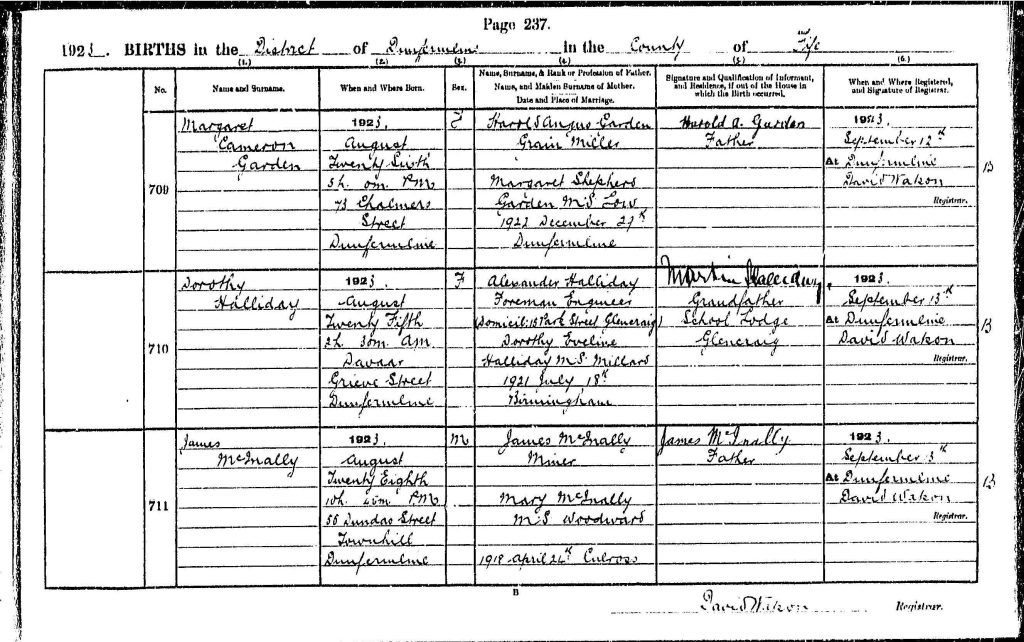 Page 237.
1923. BIRTHS in the District of Dunfermline in the County of Fife
(1.) (2.) (3.) (4.) (5.) (6.)
No.
Name and Surname.
When and Where Born.
Sex.
Name, Surname, & Rank or Profession of Father.
Name, and Maiden Surname of Mother.
Date and Place of Marriage.
Signature and Qualification of Informant,
and Residence, if out of the House in
which the Birth occurred.
When and Where Registered,
and Signature of Registrar.
709
Margaret
Cameron
Garden
1923.
August
Twenty Sixth
5h. 0m. PM
73 Chalmers
Street
Dunfermline
F
Harold Angus Garden
Grain Miller
Margaret Shepherd
Garden M.S. Low
1922 December 27th
Dunfermline
Harold A. Garden
Father
1923
September 12th
At Dunfermline
David Watson
Registrar.
B
710
Dorothy
Halliday
1923.
August
Twenty Fifth
2h. 30m. AM
Davaar
Grieve Street
Dunfermline
F
Alexander Halliday
Foreman Engineer
(Domicil: 13 Park Street Glencraig)
Dorothy Eveline
Halliday M.S. Millard
1921 July 18th
Birmingham
Martin Halliday.
Grandfather
School Lodge
Glencraig
1923.
September 13th
At Dunfermline
David Watson
Registrar.
B
711
James
McInally
1923.
August
Twenty Eighth
10h. PM
55 Dundas Street
Townhill
Dunfermline
M
James McInally
Miner
Mary McInally
M.S. Woodward
April 26th Culross
James McInally
Father
1923.
September
At Dunfermline
David Watson
Registrar.
B
B
David Watson Registrar.